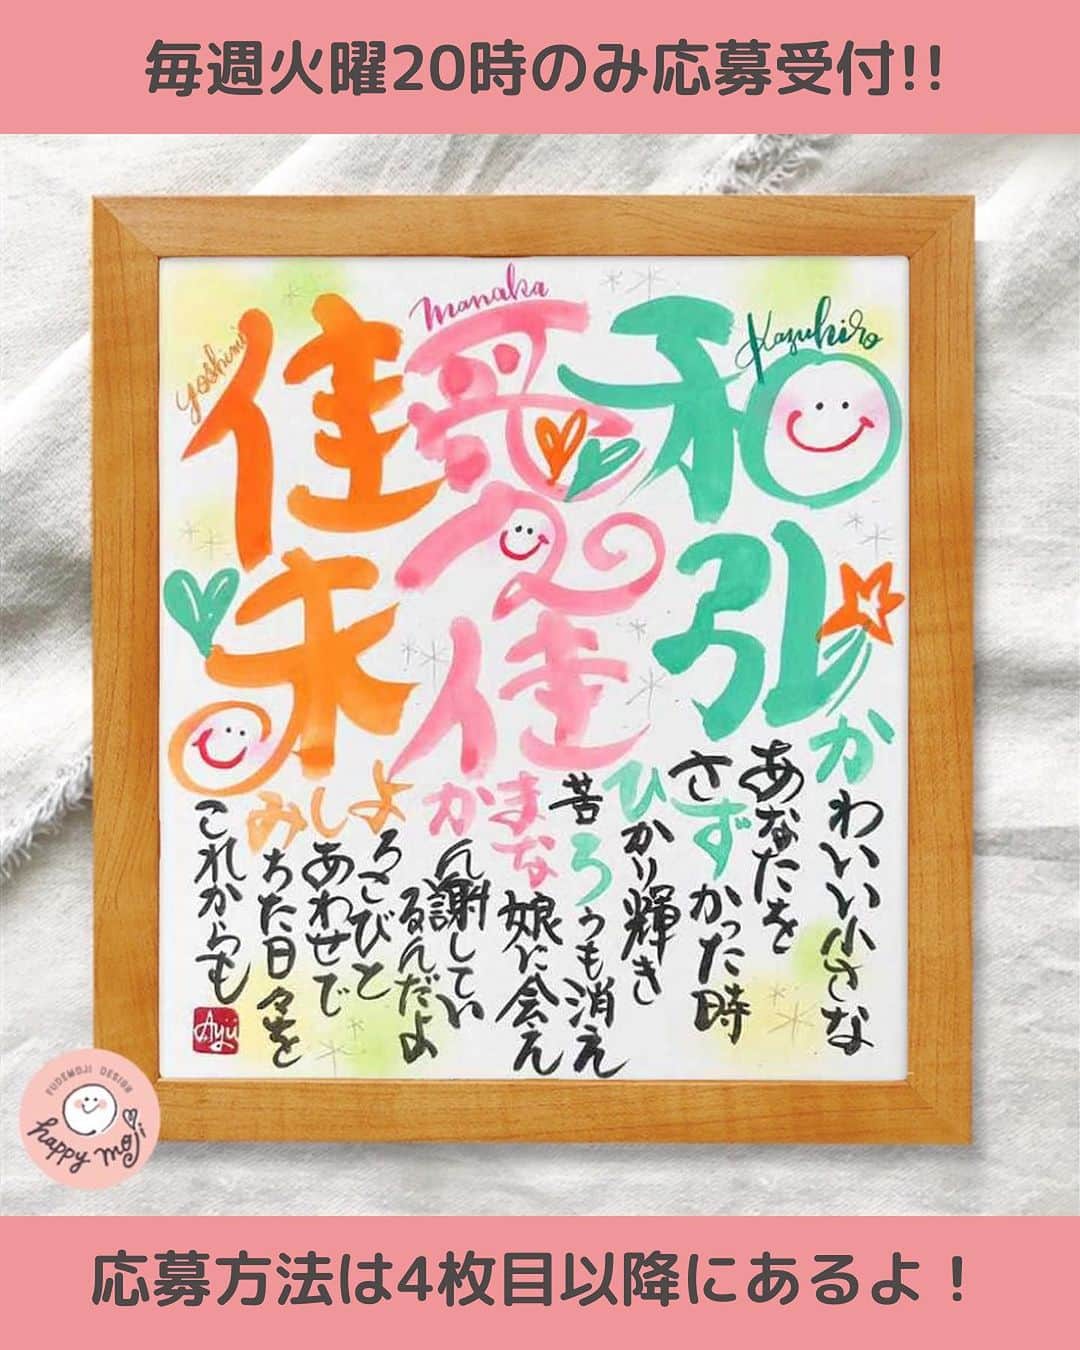 毎週火曜20時のみ応募受付!!
Kazuhiro
和
弘
manaka
愛
佳
yoshimi
佳
未
かわいい小さな
あなたを
さずかった時
ひかり輝き
苦ろうも消え
まな娘に会え
かん謝してい
るんだよ
よろこびと
しあわせで
みちた日々を
これからも
Ayü
FUDEMOJI DESIGN
happy moji
応募方法は4枚目以降にあるよ！